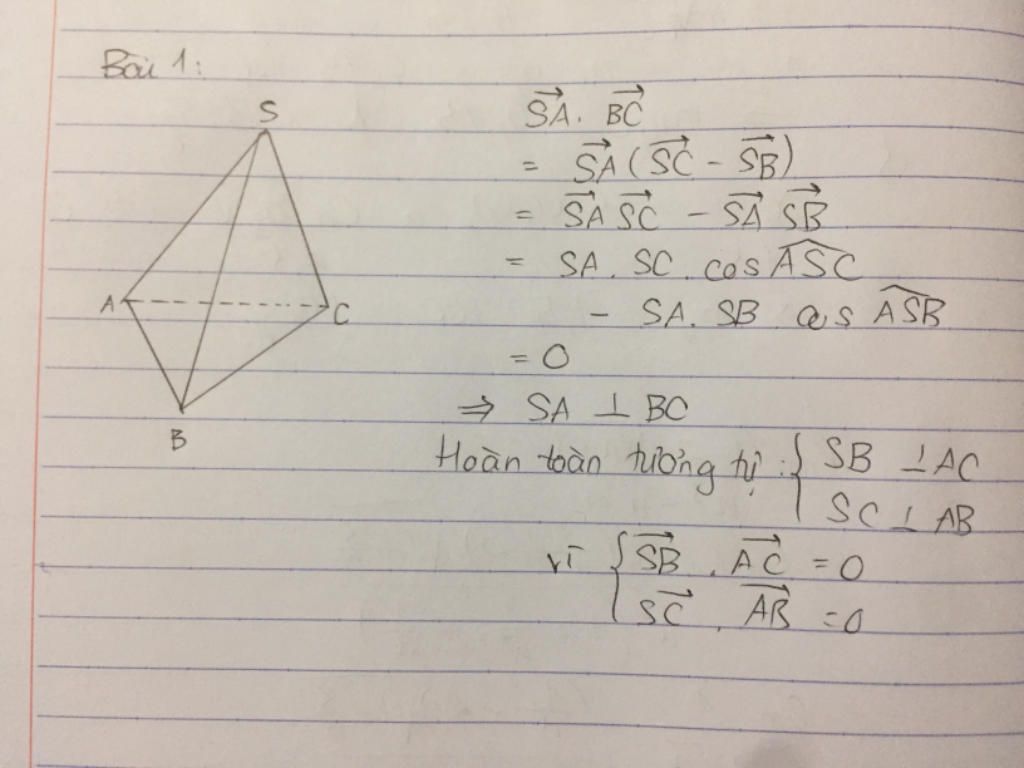 Bài 1:
S
A
C
B
$\overrightarrow{SA} . \overrightarrow{BC}$
$= \overrightarrow{SA} (\overrightarrow{SC} - \overrightarrow{SB})$
$= \overrightarrow{SA} \overrightarrow{SC} - \overrightarrow{SA} \overrightarrow{SB}$
$= SA . SC . cos \widehat{ASC}$
$- SA . SB cos \widehat{ASB}$
$= 0$
$\Rightarrow SA \perp BC$
Hoàn toàn tương tự : $\begin{cases} SB \perp AC \\ SC \perp AB \end{cases}$
vì $\begin{cases} \overrightarrow{SB} . \overrightarrow{AC} = 0 \\ \overrightarrow{SC} . \overrightarrow{AB} = 0 \end{cases}$